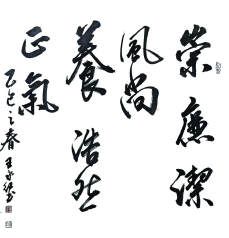 崇廉潔
風尚
養浩然
正氣
乙巳之春王永德書